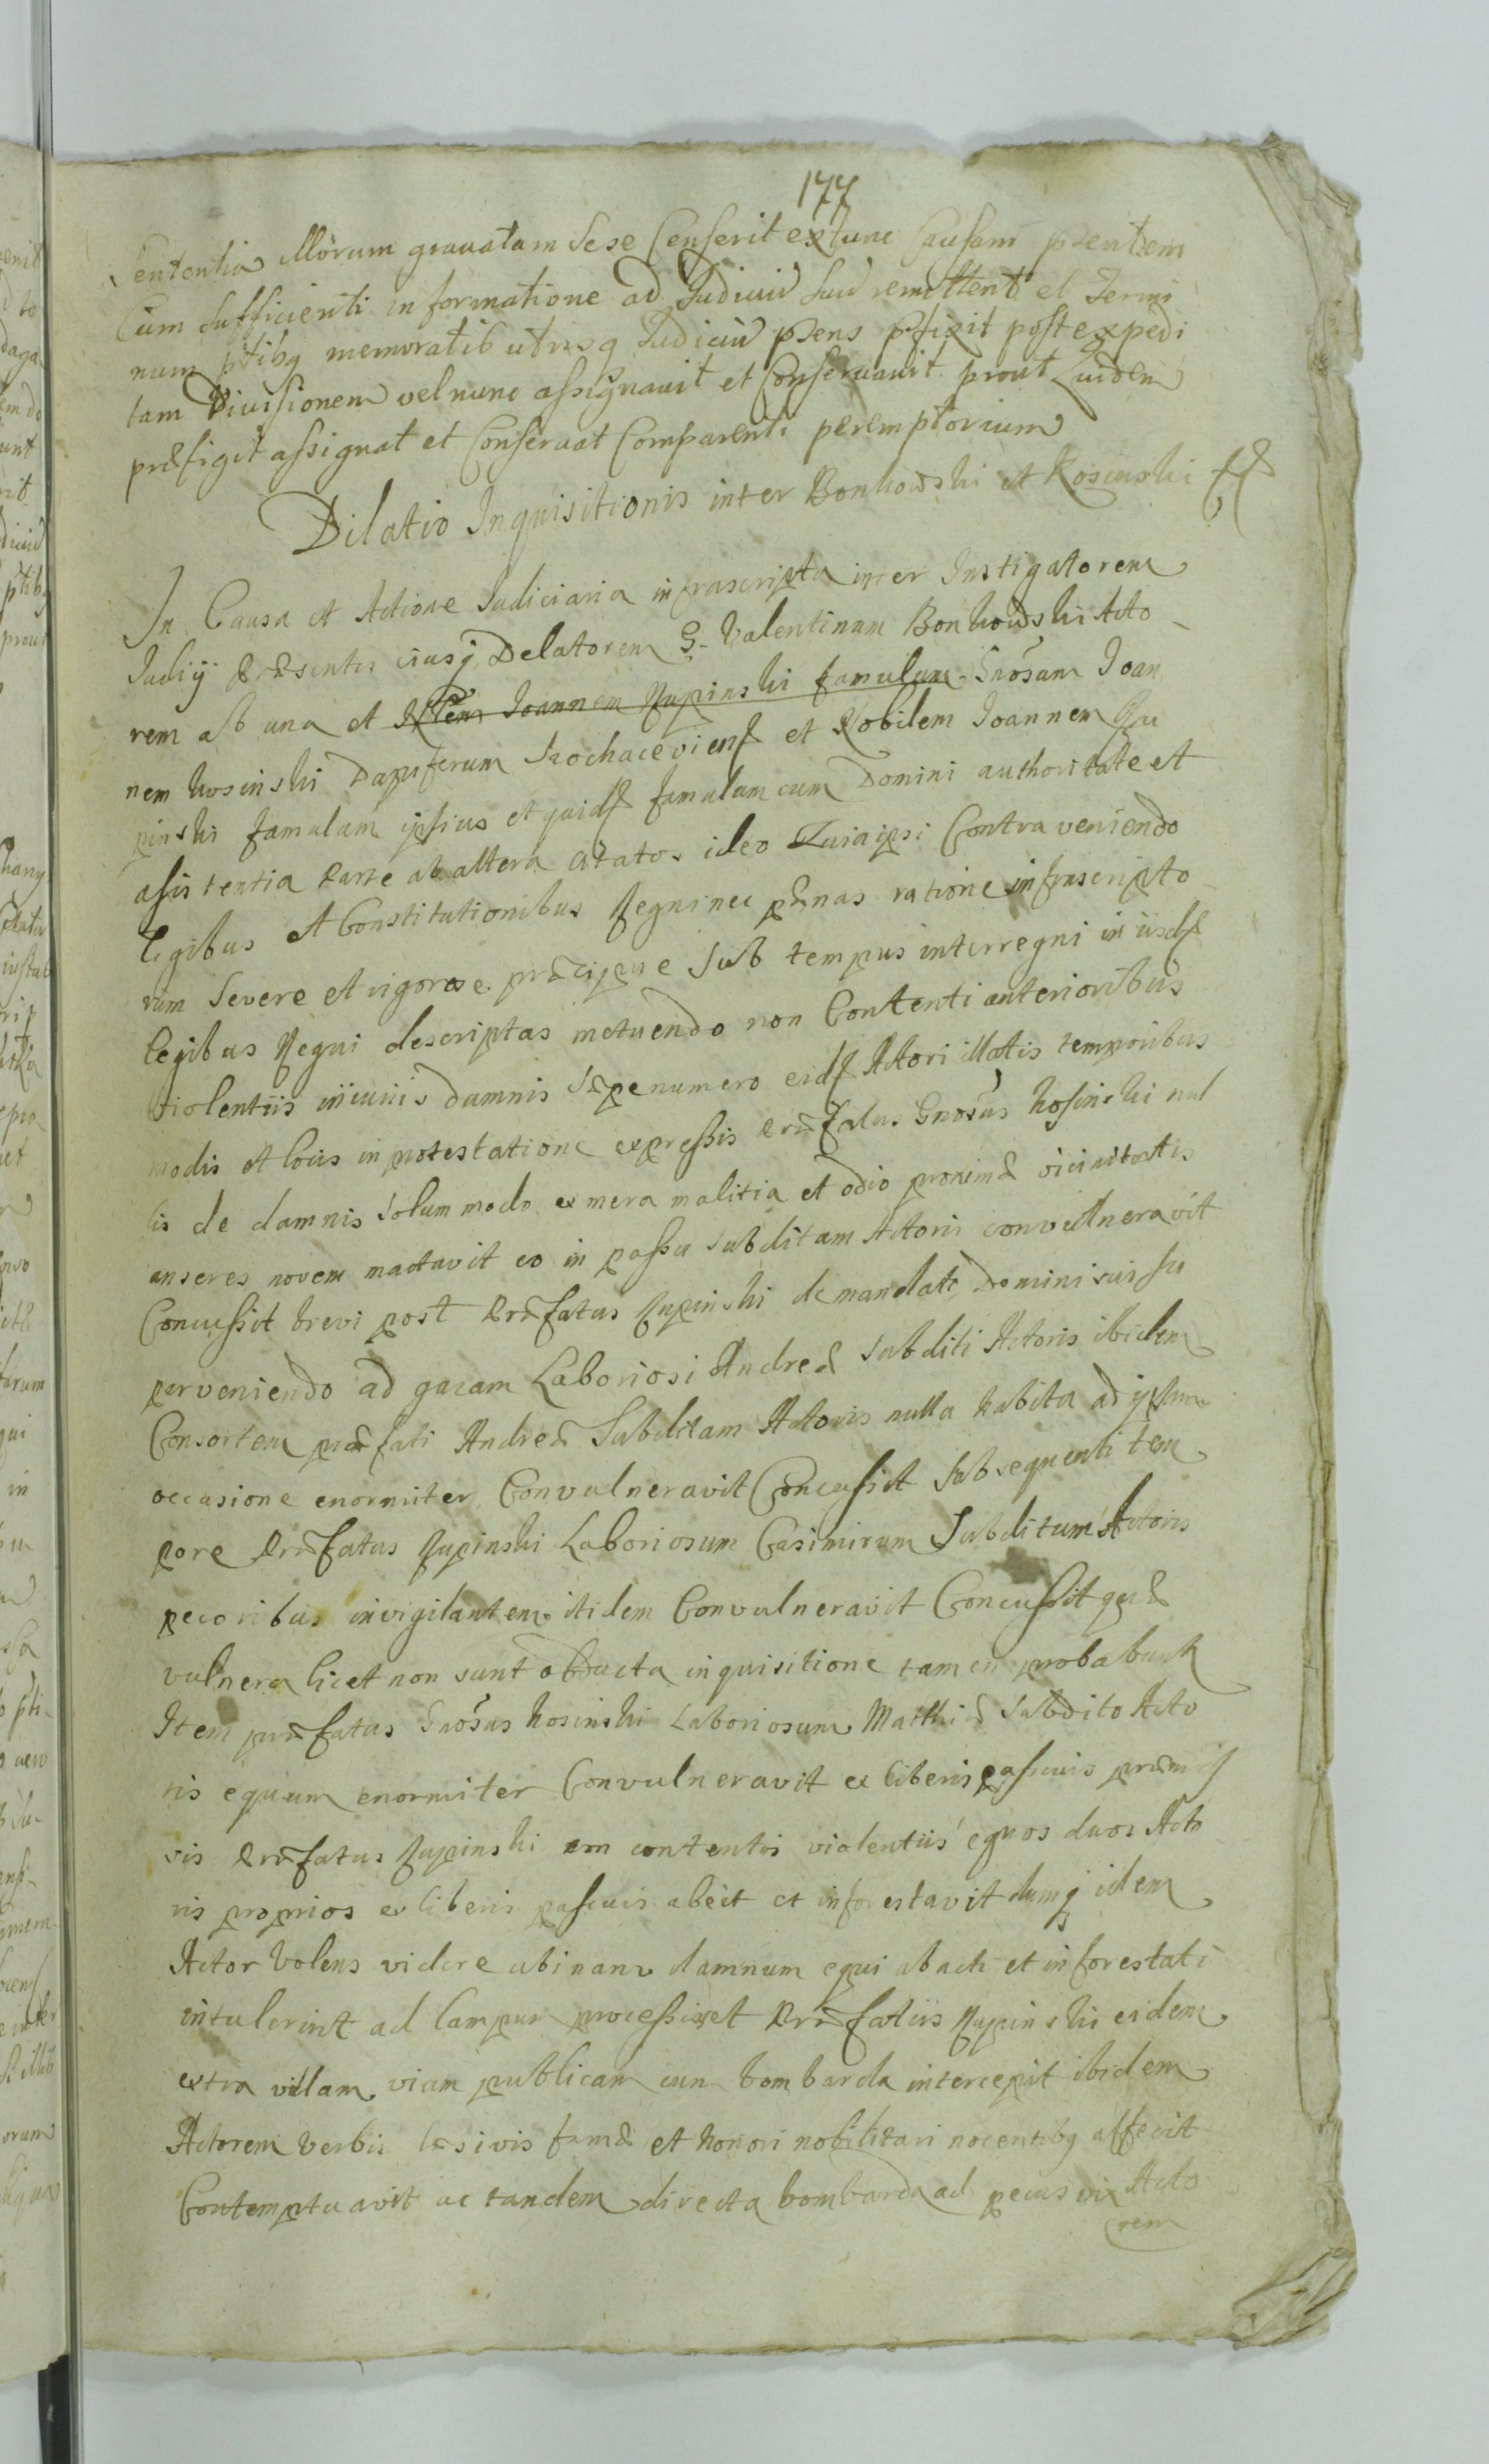 177
Sententia illorum gravatam sese Censerit extunc Causam pñtem
Cum sufficienti informatione ad Judiciũ suũ remittent et Termi
num ptibq memoratis utrisq Judiciũ pñens pfixit post expedi
tam Divisionem vel nunc assignavit et Conservavit prout Quidem
præfigit assignat et Conservat Comparendi peremptorium
Dilatio Inquisitionis inter Bonkowski et Kosinski
In Causa et Actione Judiciaria infrascripta inter Instigatorem
Judiÿ Præsentis eiusq Delatorem G. Valentinum Bonkowski Acto
rem ab una et Joannem Rupinski famulum Gnosum Joan
nem Kosinski Dapiferum Sochaceviens et Nobilem Joannem Ru
pinski famulum ipsius et quid famulum cum Domini authoritate et
asistentia Parte ab altera Citatos ideo Quia ipsi Contraveniendo
legibus et Constitutionibus Regni nec pænas ratione infrascripto
rum severe et rigorose præcipue sub tempus interregni in iisd
legibus Regni descriptas metuendo non Contenti anterioribus
violentiis iniuriis damnis sæpenumero eid Actori illatis temporibus
modis et locis in protestatione expressis Præfatus Gnosus Kosinski nul
lis de damnis solummodo ex mera malitia et odio proximæ vicinitatis
anseres novem mactavit eo in passu subditam Actoris convulneravit
Concussit brevi post Præfatus Rupinski de mandato Domini sui su
perveniendo ad gazam Laboriosi Andreæ subditi Actoris ibidem
Consortem præfati Andreæ Subditam Actoris nulla habita ad ipsam
occasione enormiter Convulneravit Concussit subsequenti tem
pore Præfatus Rupinski Laboriosum Casimirum Subditum Actoris
pecoribus invigilantem itidem Convulneravit Concussit quæ
vulnera licet non sunt obducta inquisitione tamen probabunt
Item præfatus Gnosus Kosinski Laboriosum Matthiæ Subdito Acto
ris equum enormiter Convulneravit ex liberis pascuis præmis
sis Præfatus Rupinski non contentus violentiis equos duos Acto
ris proprios ex liberis pascuis abegit et inforestavit dumq idem
Actor volens videre ubinam damnum equi abacti et inforestati
intulerint ad Campum processisset Præfatus Rupinski eidem
extra villam viam publicam cum bombarda intercepit ibidem
Actorem verbis læsivis famæ et honori nobilitari nocentibq affecit
Contemptuavit ac tandem directa bombarda ad pecus vix Acto
rem